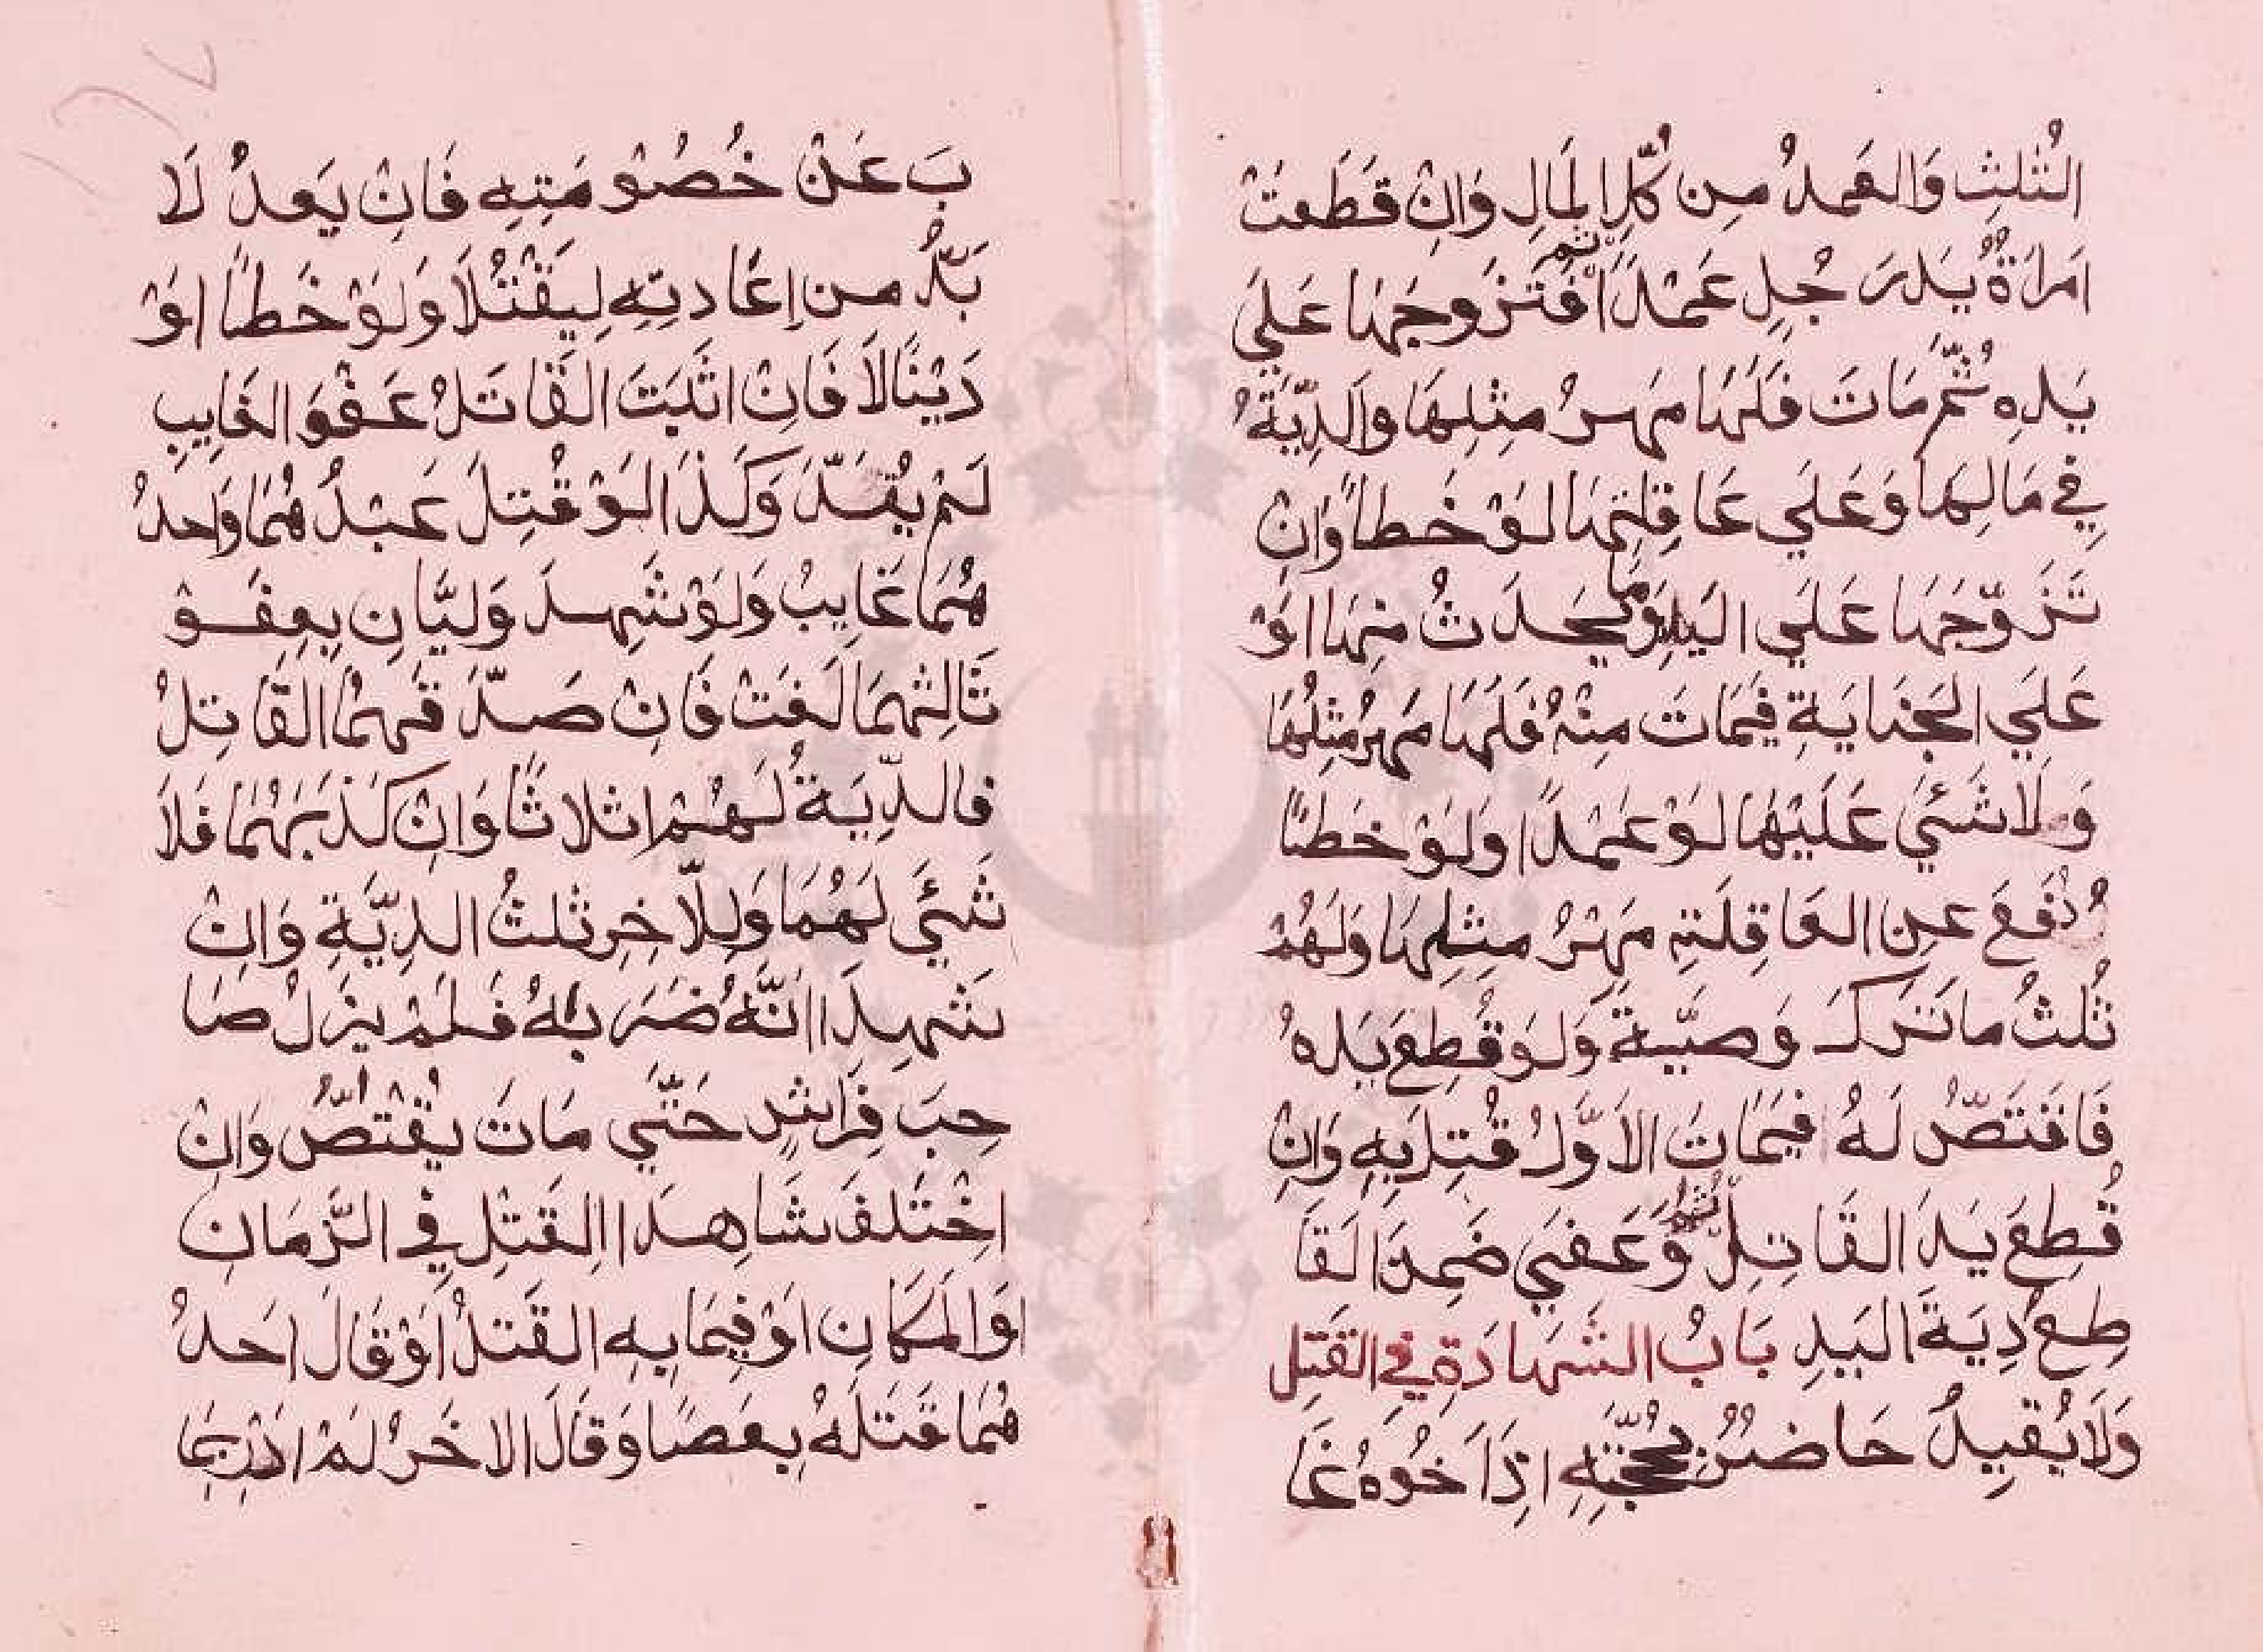 الثُلثِ وَالعَمدُ مِن كُلِّ المَالِ وَاِنْ قَطَعَتْ
اَمرَاةٌ يَدَ رَجُلٍ عَمْدًا ثم فَتَزَوجَهَا عَلَي
يَدِهِ ثُمَّ مَاتَ فَلَهَا مَهرُ مِثلِهَا وَالدِّيَةُ
فِي مَالِهَا وَعَلَي عَاقِلَتِهَا لَوْ خَطاً وَاِنْ
تَزَوَّجَهَا عَلَي اليَدِ وَمَا يَحدَثُ مِنهَا اَوْ
عَلَي الجِنَايَةِ فَمَاتَ مِنْهُ فَلَهَا مَهرُ مِثلِهَا
وَلَا شَئَي عَلَيْهَا لَوْ عَمْدًا وَلَوْ خَطاً
رُفِعَ عنِ العَاقِلَةِ مَهْرُ مِثلِهَا وَلَهُمْ
ثُلثُ مَا تَرَكَ وَصيَّةً وَلَوْ قُطِعَ يَدهُ
فَاقتَصَّ لَهُ فَمَاتَ الاَوَّلُ قُتِلَ بِهِ وَاِنْ
قُطِعَ يَدَ القَاتِلِ وَعَفَي ضَمِنَ القَا
طِعُ دِيَةَ اليَدِ بَابُ الشَهَادَةِ فِي القَتِل
وَلَا يُقِيدُ حَاضرٌ بِحُجَّتِهِ اِذَا خُوهُ غَا
بَ عَنْ خُصُومَتِهِ فَاِنْ يَعدُ لَا
بَدُّ من اِعَادتِهِ لِيَقْتُلَا وَلَوْ خَطاً اَوْ
دَيْنًا لَا فَاِنْ اثَبَتَ القَاتَلُ عَفْوَ الغَايِبِ
لَمْ يُقَدّ وَكَذَا لَوْ قُتِلَ عَبْدُ هُمَا وَاَحدُ
هُمَا غَايِبُ وَلَوْ شَهِدَ وَليَّانِ بِعِفَوْ
ثَالِثِهمَا لَغَتْ فَاِنْ صَدَّقَهمُا القَاتِلُ
فالدِّيَةُ لَهُمْ اِثلاثًا وَاِنْ كَذَبَهُمَا فَلَا
شَئَي لَهُمَا وَلِلاَخِرِ ثلثُ الدِيَّةِ وَاِنْ
شَهِدَا اَنَّهُ ضَرَبهُ فَلَمْ يزَلْ صَا
حِبَ فِرَاشٍ حَتَّي مَاتَ يُقْتَصُّ وَاِنْ
اخْتَلَفَ شَاهِدَا القَتِلِ فِي الزَّمَانِ
اوَالمَكَانِ اَوْ فِيمَا بِهِ القَتلُ اَوْ قَالَ اَحدُ
هُمَا قَتَلَهُ بِعَصَا وَقَالَ الاخَرُ لَمْ اَدْرِ بِمَا